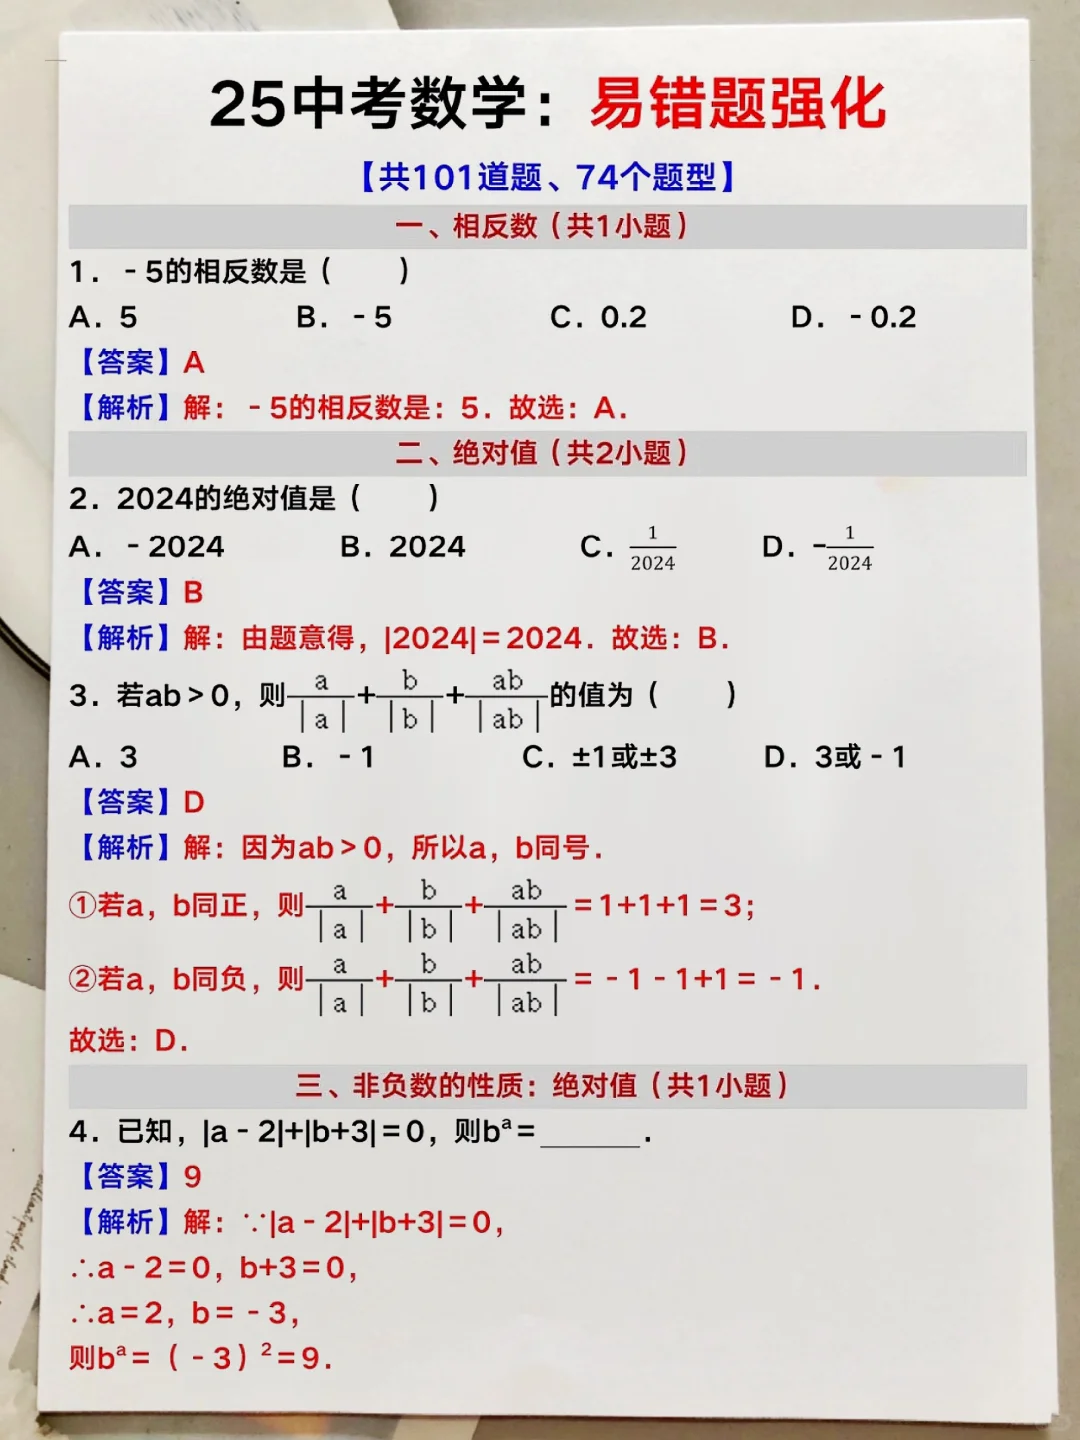 25中考数学：易错题强化
【共101道题、74个题型】
一、相反数（共1小题）
1．﹣5的相反数是（　　）
A．5 B．﹣5 C．0.2 D．﹣0.2
【答案】A
【解析】解：﹣5的相反数是：5．故选：A．
二、绝对值（共2小题）
2．2024的绝对值是（　　）
A．﹣2024 B．2024 C．1/2024 D．-1/2024
【答案】B
【解析】解：由题意得，|2024|＝2024．故选：B．
3．若ab＞0，则a/|a|+b/|b|+ab/|ab|的值为（　　）
A．3 B．﹣1 C．±1或±3 D．3或﹣1
【答案】D
【解析】解：因为ab＞0，所以a，b同号．
①若a，b同正，则a/|a|+b/|b|+ab/|ab|＝1+1+1＝3；
②若a，b同负，则a/|a|+b/|b|+ab/|ab|＝﹣1﹣1+1＝﹣1．
故选：D．
三、非负数的性质：绝对值（共1小题）
4．已知，|a﹣2|+|b+3|＝0，则bᵃ＝______．
【答案】9
【解析】解：∵|a﹣2|+|b+3|＝0，
∴a﹣2＝0，b+3＝0，
∴a＝2，b＝﹣3，
则bᵃ＝（﹣3）²＝9．